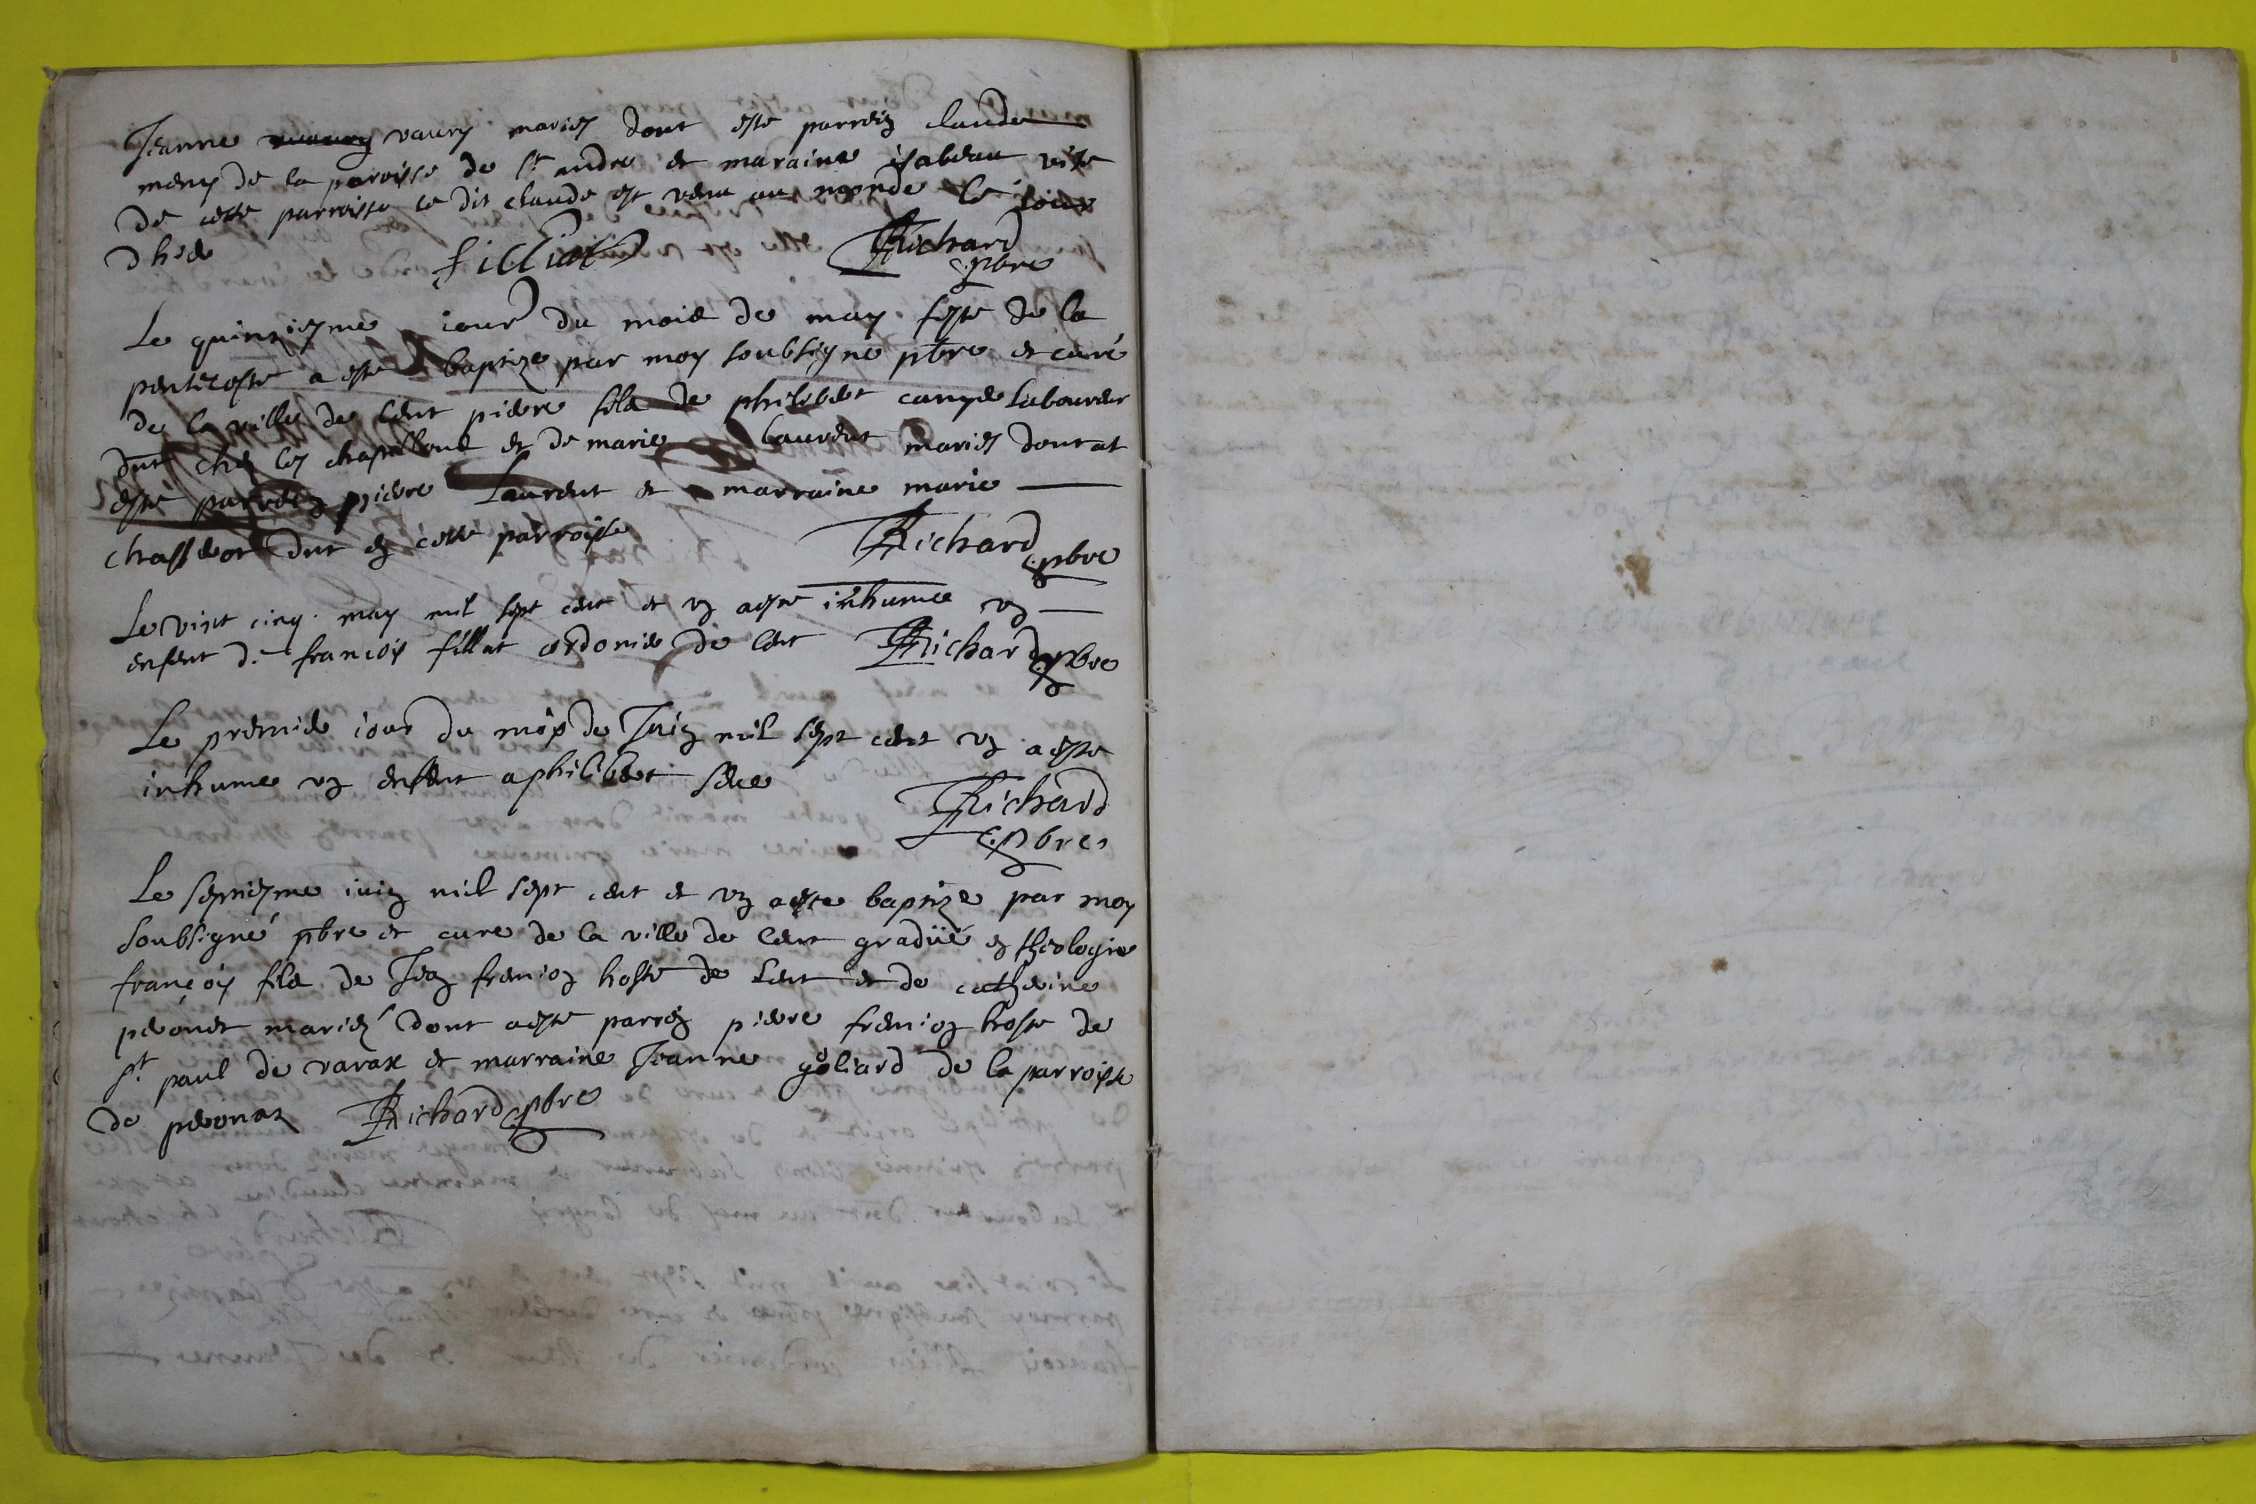 Jeanne vaury mariez dont este parrein claude
meny de la paroisse de st andre et maraine isabeau
de cette parroisse le dit claude est venu au monde le jour
d hier filliat Richard pbre
Le quinziesme jour du mois de may feste de la
pentecoste a este baptize par moy soubsigne pbre et curé
de la ville de lent piere fils de philibert labourer
dnt chez les et de marie laurent mariez dont at
esté parrein piere Laurent et marraine marie
dnt en cette parroisse Richard pbre
Le vint cinq may mil sept cent et un a este inhume un
enfent de françois fillat cordonier de lent Richard pbre
Le premier jour du mois de Juin mil sept cent un a este
inhume un enfent a philibert Richard
pbre
Le septiesme juin mil sept cent et un a este baptize par moy
soubsigné pbre et cure de la ville de lent gradüé en theologie
françois fils de Jean frenion hoste de Lent et de catherine
peronet mariez dont a este parrein piere frenion hoste de
st paul de varax et marraine Jeanne goliard de la parroisse
de peronas Richard pbre